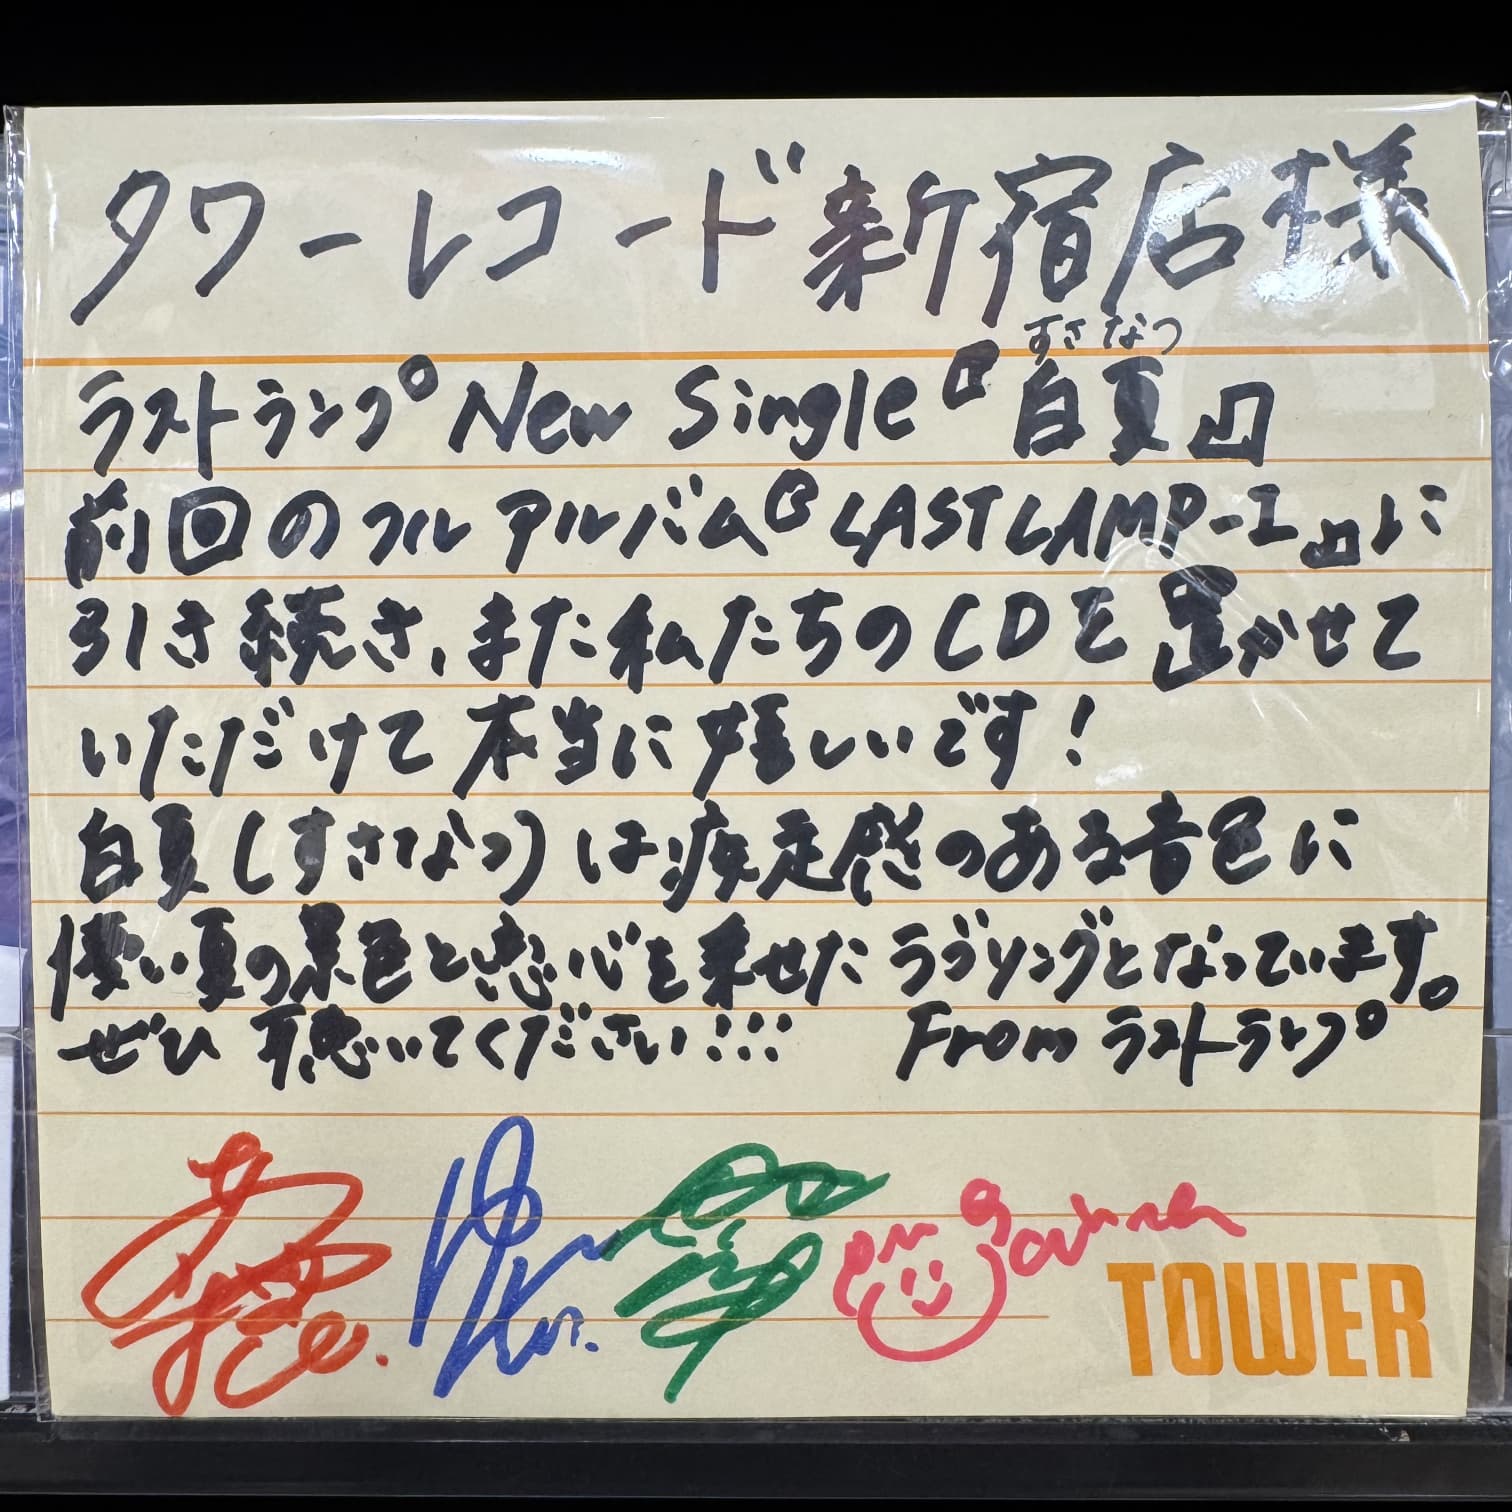 タワーレコード新宿店様
すさなつ
ラストランプ New Single『白夏』
前回のフルアルバム『LASTLAMP-I』に
引き続き、また私たちのCDを置かせて
いただけて本当に嬉しいです!
白夏(すさなつ)は疾走感のある音色に
儚い夏の景色と恋心を乗せたラブソングとなっています。
ぜひ聴いてください!!! From ラストランプ
TOWER